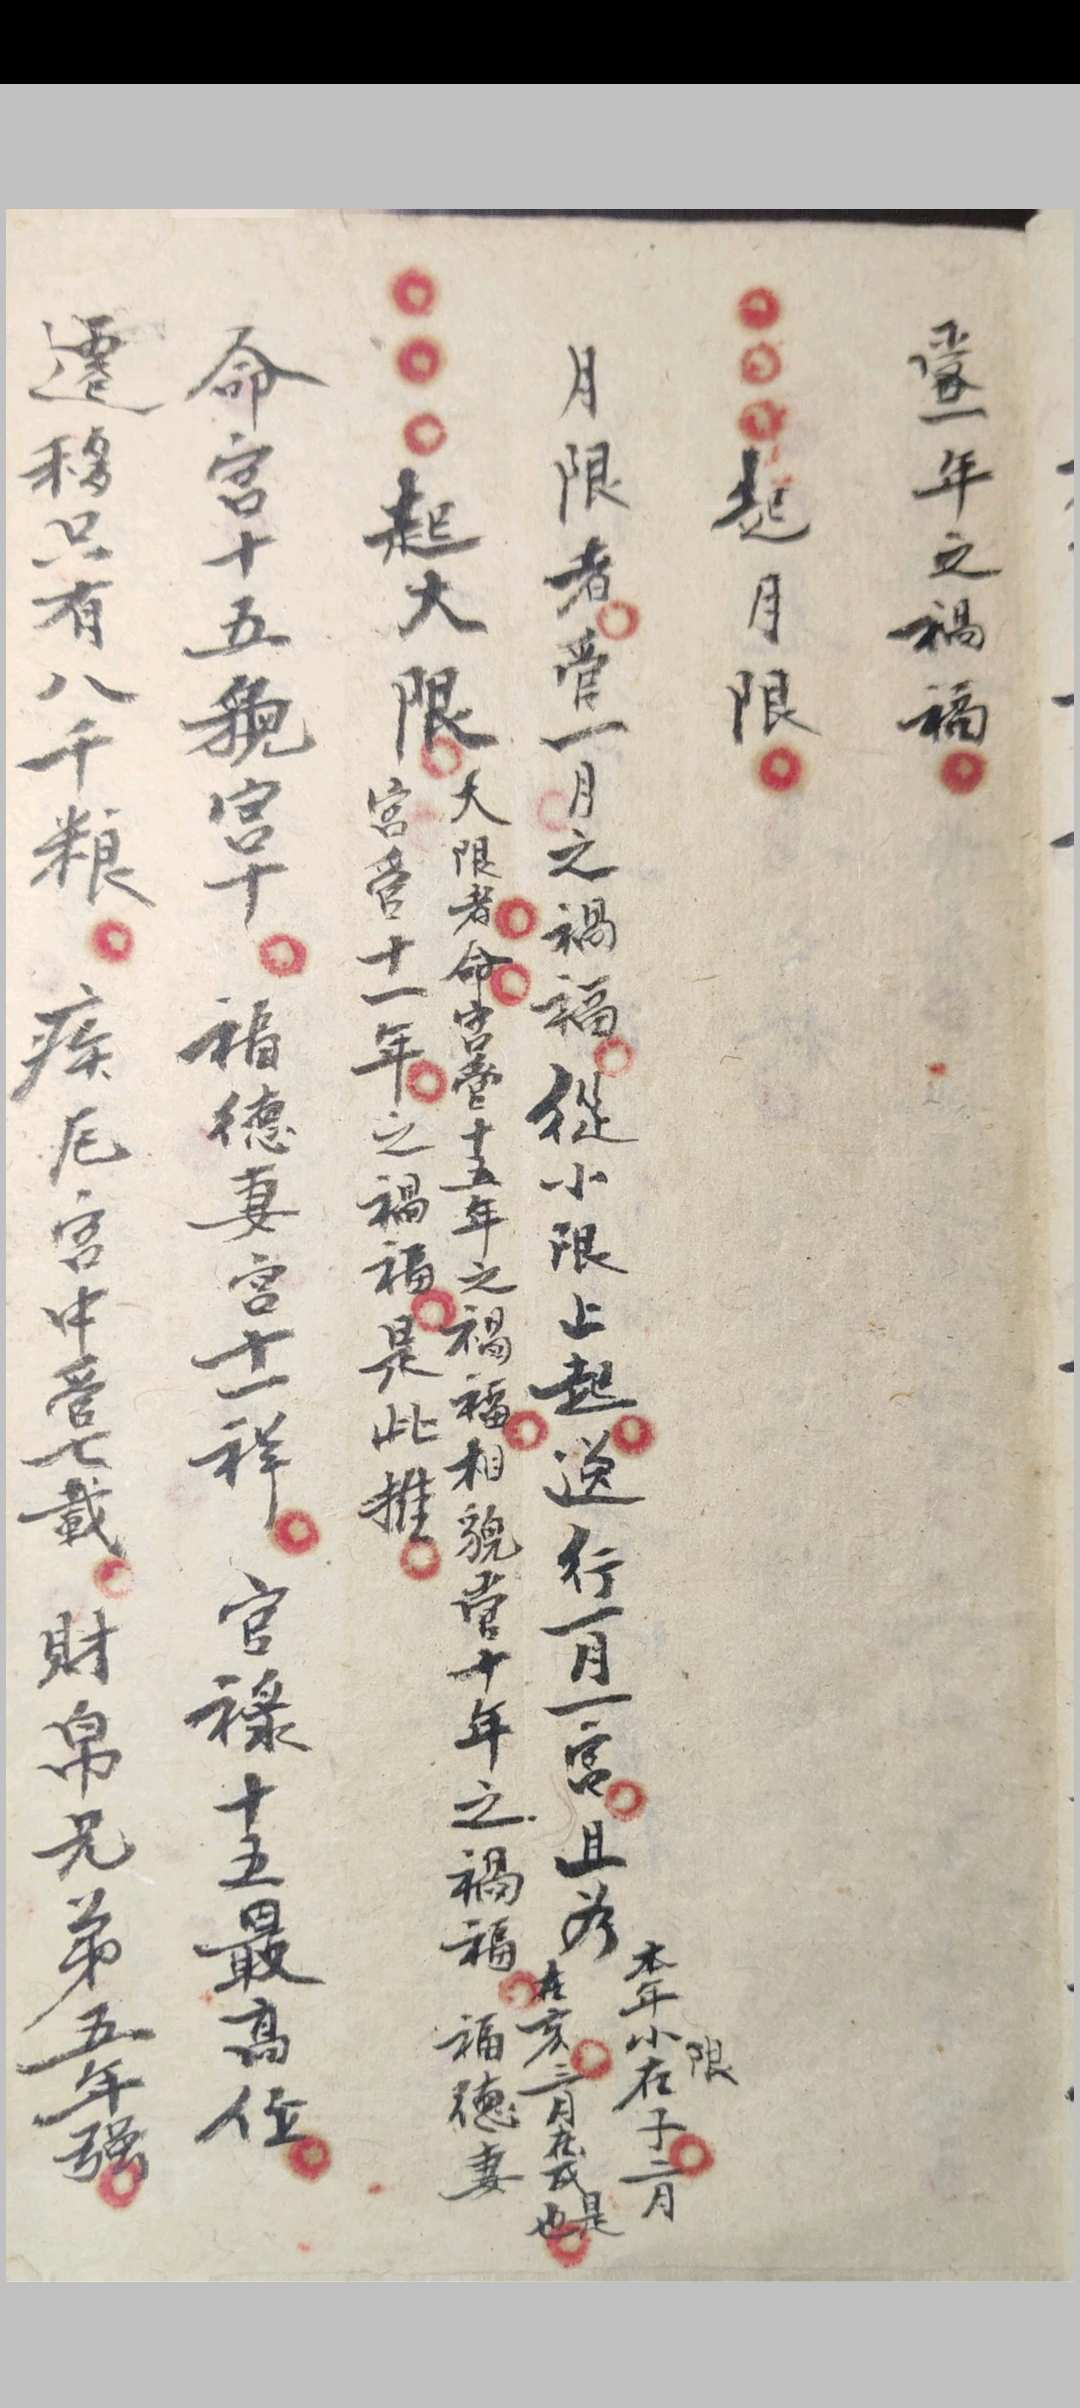 管一年之禍福
起月限
月限者管一月之禍福從小限上起逆行一月一宮且如
本年小限在子二月
在亥三月在戌是也
起大限
大限者命宮管十五年之禍福相貌管十年之禍福福德妻
宮管十一年之禍福是此推
命宮十五貌宮十福德妻宮十一祥官祿十五最高位
遷移只有八千粮疾厄宮中管七載財帛兄弟五年强